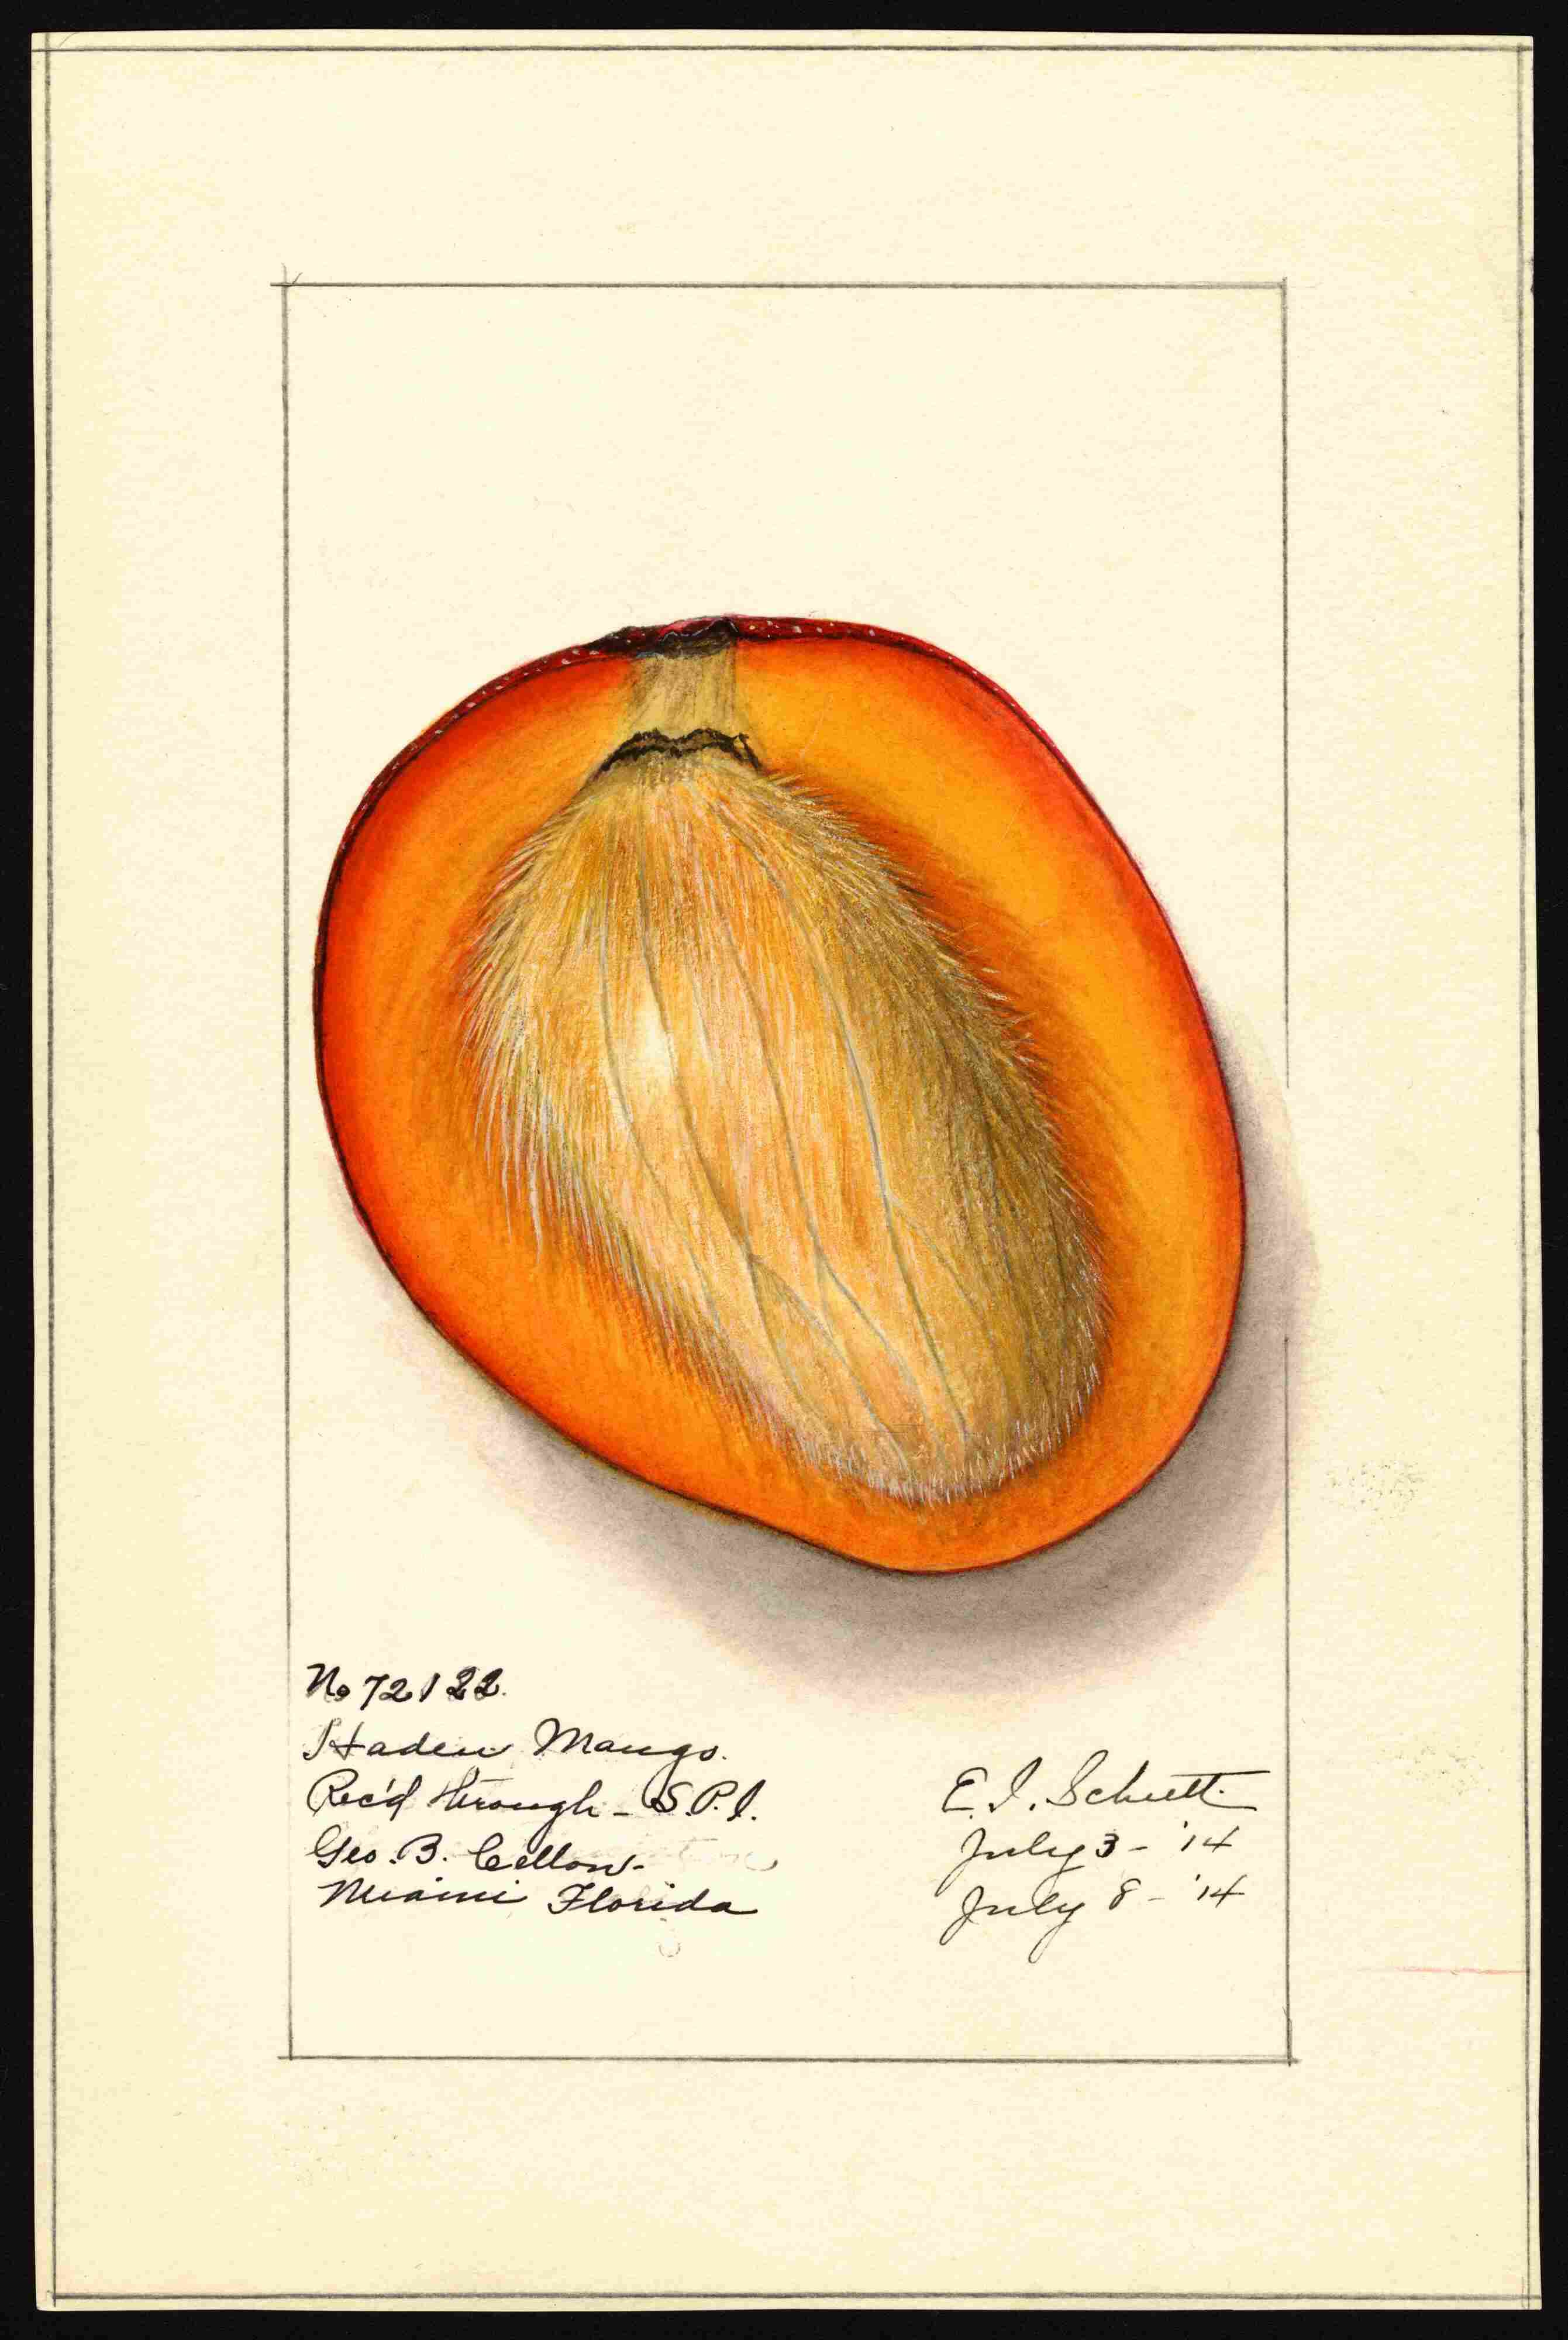 No 72122.
Haden Mango.
Rec'd through - S.P.I.
Geo. B. Cellon -
Miami Florida
E. I. Schutt.
July 3 - '14
July 8 - '14